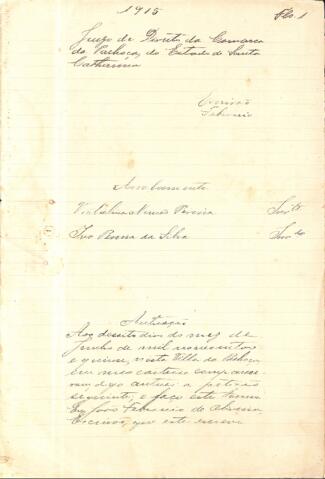 1915
Fls. 1
Juizo de Direito da Comarca
da Palhoça, do Estado de Santa
Catharina
Escrivão
Febronio
Arrolamento
Pereira Invte
Ivo da Silva Invdo
Autuação
Aos desoito dias do mez de
Junho de mil novecentos
e quinze, nesta Villa da Palhoça
em meo cartorio
digo autuei a petição
seguinte; e faço este termo
Eu João Febronio de Oliveira
Escrivão, que este escrevi